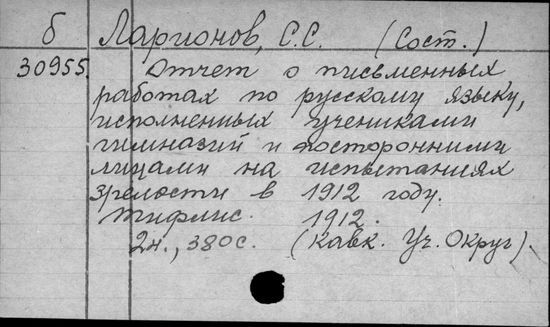 б Ларионов, С.С. (Сост.)
30955. Отчет о письменных
работах по русскому языку,
исполненных учениками
гимназий и посторонними
лицами на испытаниях
зрелости в 1912 году.
Тифлис. 1912.
2н., 380с. (Кавк. Уч. Округ).